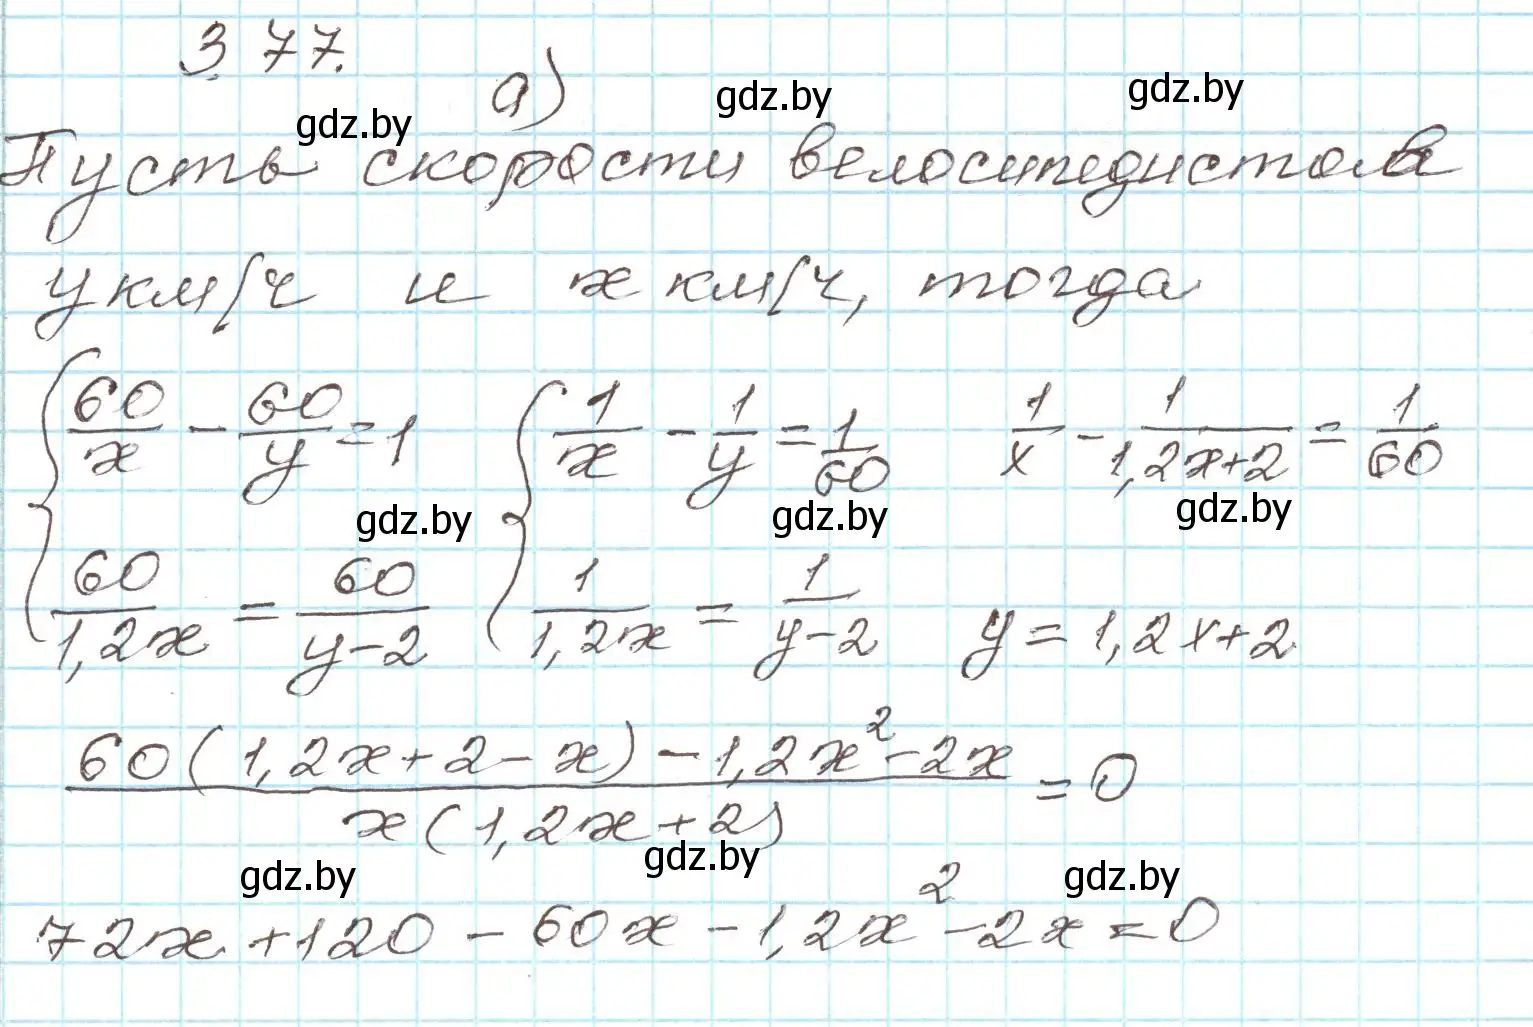 3.77.
а)
gdz.by gdz.by gdz.by
Пусть скорости велосипедистов
y км/ч и x км/ч, тогда
{ 60/x - 60/y = 1 { 1/x - 1/y = 1/60 1/x - 1/(1,2x+2) = 1/60
gdz.by gdz.by gdz.by
60/(1,2x) = 60/(y-2) 1/(1,2x) = 1/(y-2) y = 1,2x+2
(60(1,2x+2-x) - 1,2x² - 2x)/(x(1,2x+2)) = 0
gdz.by gdz.by gdz.by
72x + 120 - 60x - 1,2x² - 2x = 0